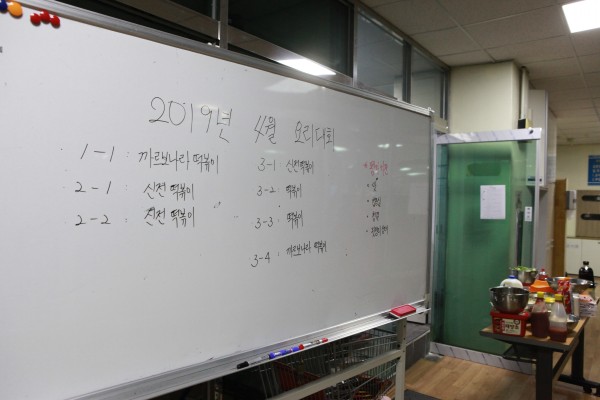 2019년 4월 요리대회
1-1 : 까르보나라 떡볶이
2-1 : 신전 떡볶이
2-2 : 신전 떡볶이
3-1 신전떡볶이
3-2 떡볶이
3-3 : 떡볶이
3-4 : 까르보나라 떡볶이